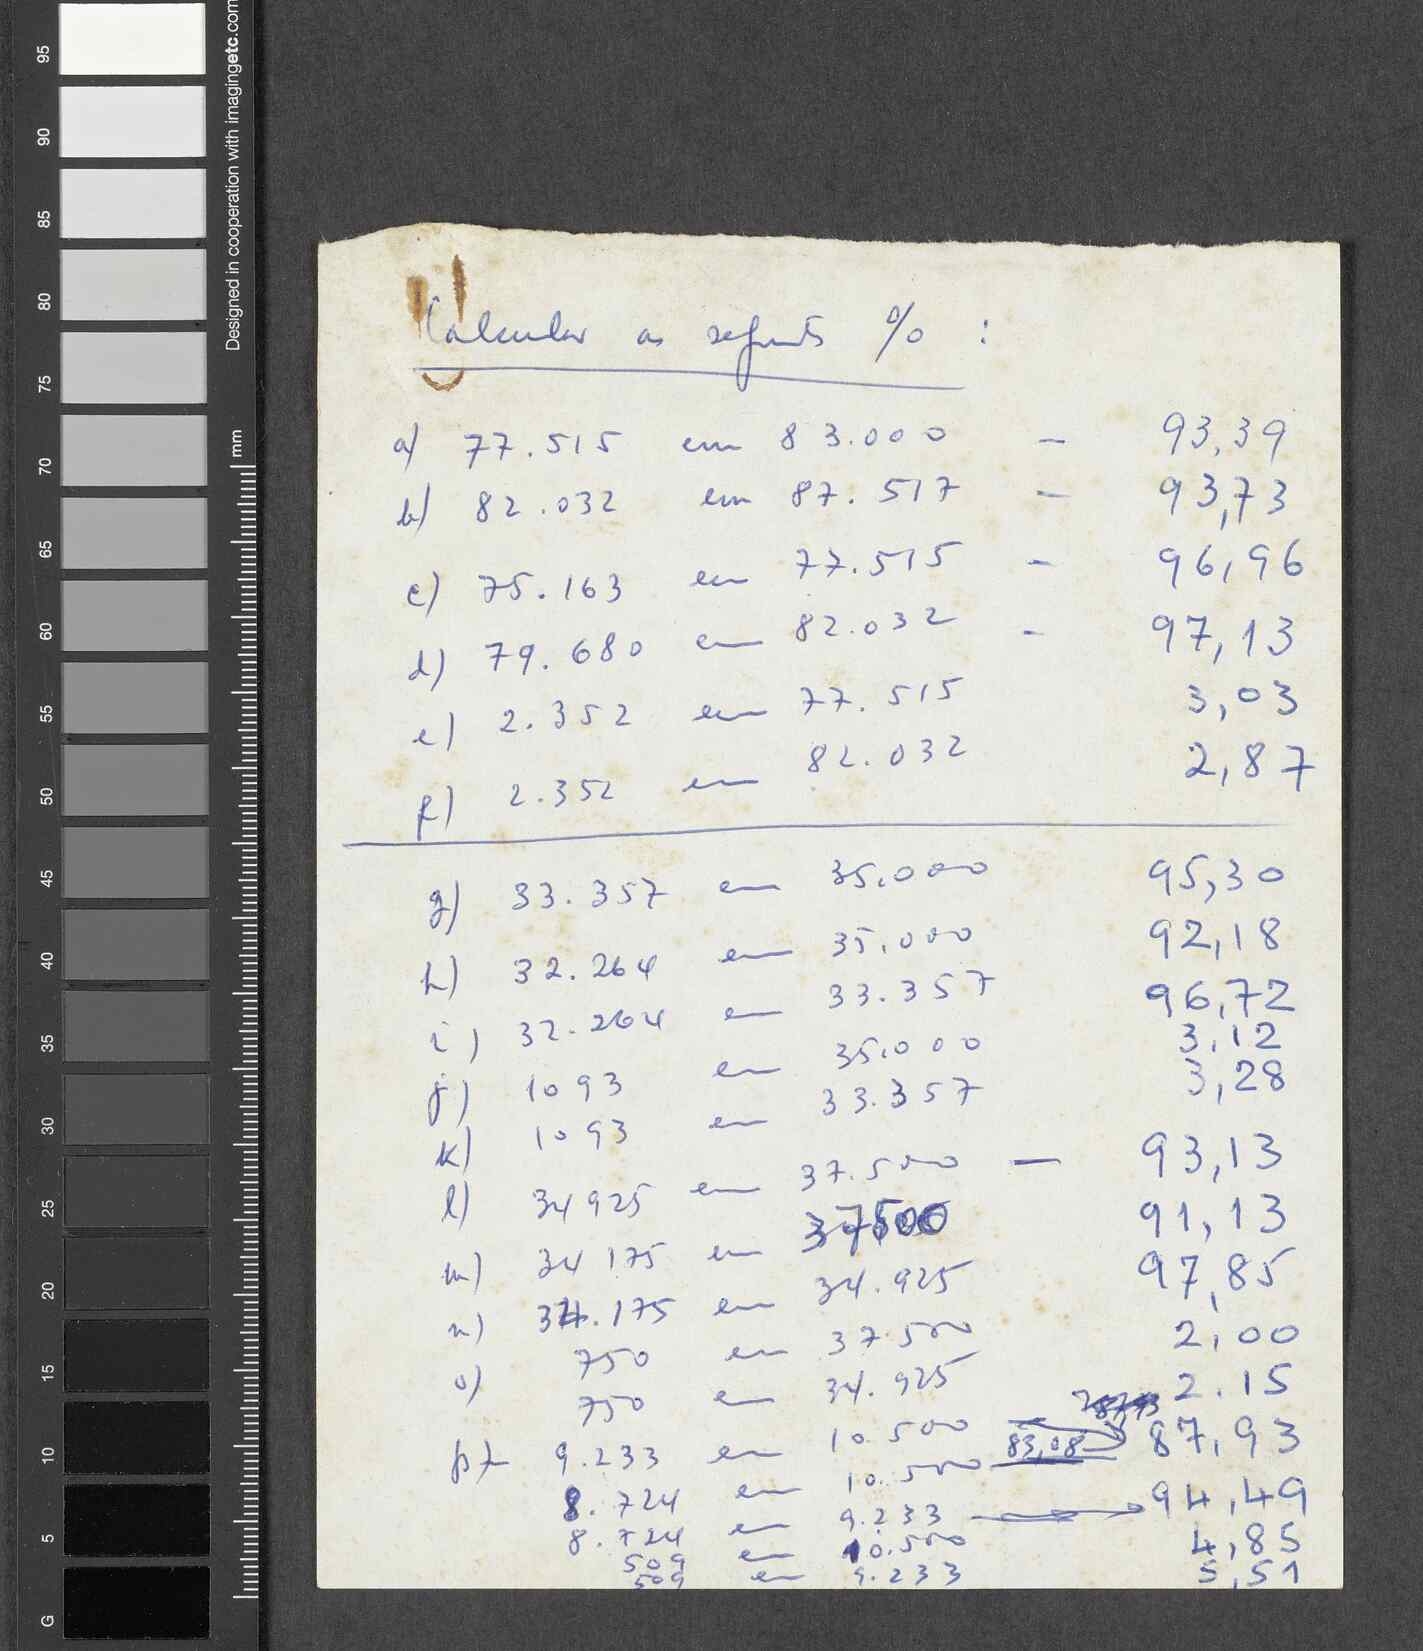 Calcular as seguintes % :
a) 77.515 em 83.000 — 93,39
b) 82.032 em 87.517 — 93,73
c) 75.163 em 77.515 — 96,96
d) 79.680 em 82.032 - 97,13
e) 2.352 em 77.515 3,03
f) 2.352 em 82.032 2,87
g) 33.357 em 35.000 95,30
h) 32.264 em 35.000 92,18
i) 32.264 em 33.357 96,72
j) 1093 em 35.000 3,12
k) 1093 em 33.357 3,28
l) 34925 em 37.500 — 93,13
m) 34175 em 37500 91,13
n) 34.175 em 34.925 97,85
o) 750 em 37.500 2,00
750 em 34.925 2.15
p) 9.233 em 10.500 87,93
8.724 em 10.500 83,08
8.724 em 9.233 94,49
509 em 10.500 4,85
509 em 9.233 5,51
Designed in cooperation with imagingetc.com
mm
95
90
85
80
75
70
65
60
55
50
45
40
35
30
25
20
15
10
5
G